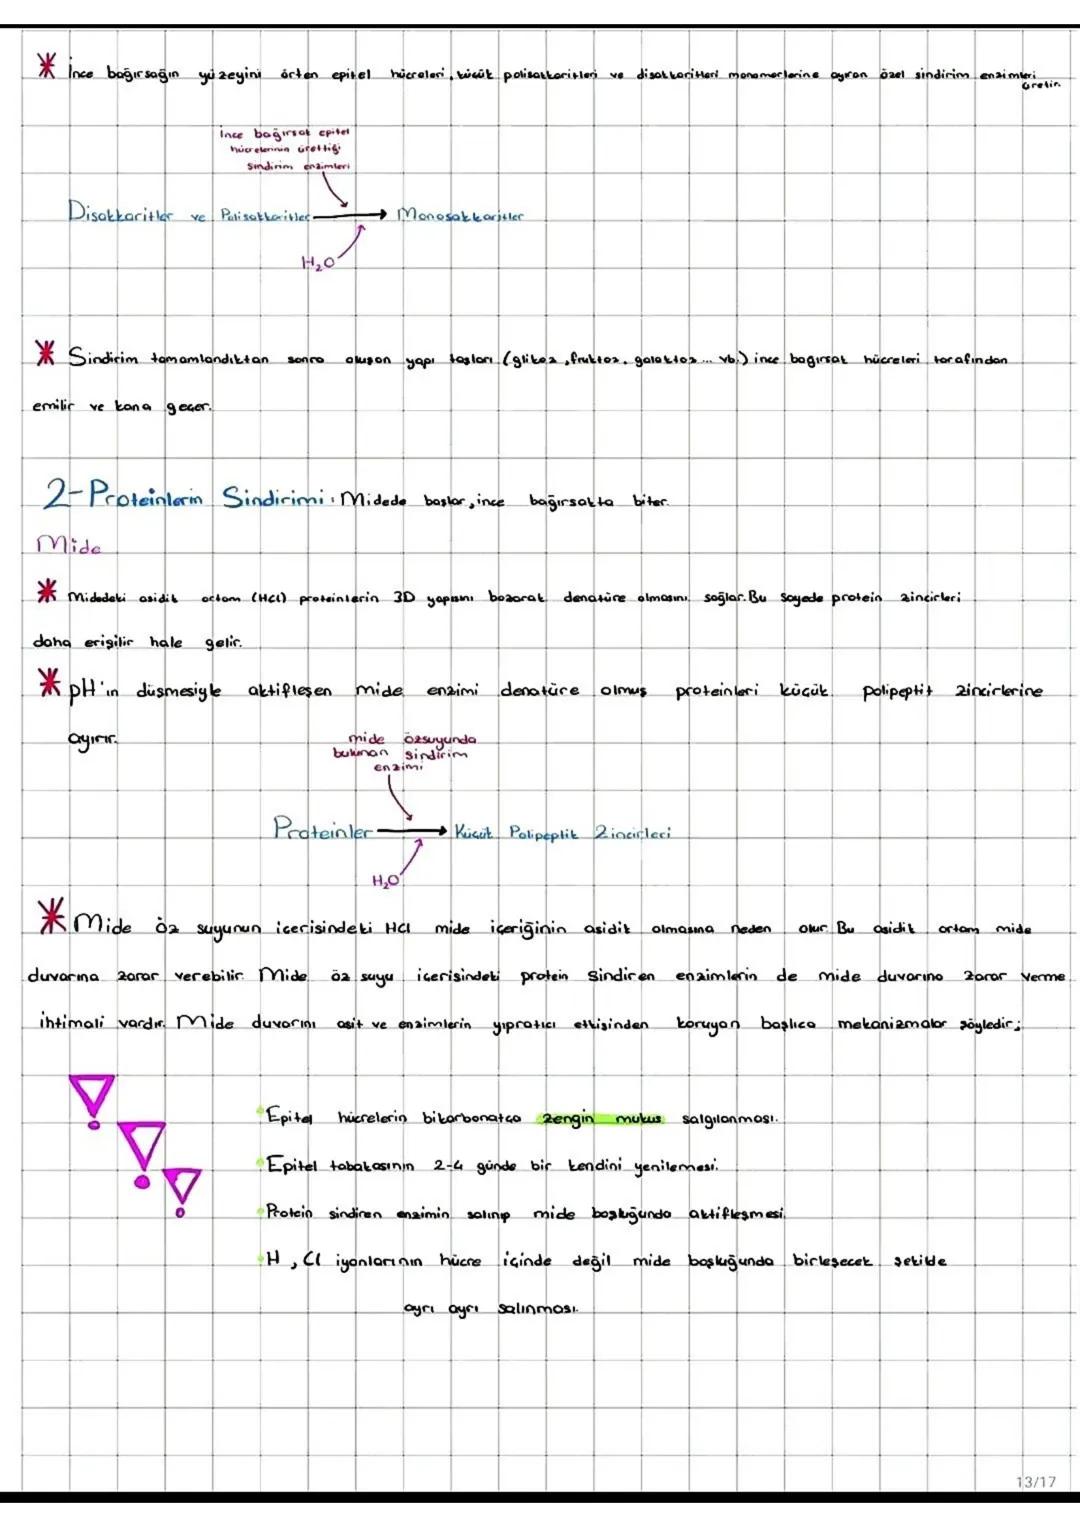 * İnce bağırsağın yüzeyini örten epitel hücreleri, küçük polisakkaritleri ve disakkaritleri monomerlerine ayıran özel sindirim enzimleri
üretir.
İnce bağırsak epitel
hücrelerinin ürettiği
sindirim enzimleri
Disakkaritler ve Polisakkaritler → Monosakkaritler
H₂O
* Sindirim tamamlandıktan sonra oluşan yapı taşları (glikoz, fruktoz, galaktoz... vb.) ince bağırsak hücreleri tarafından
emilir ve kana geçer.
2-Proteinlerin Sindirimi: Midede başlar, ince bağırsakta biter.
Mide
* Midedeki asidik ortam (HCl) proteinlerin 3D yapısını bozarak denatüre olmasını sağlar. Bu sayede protein zincirleri
daha erişilir hale gelir.
* pH'ın düşmesiyle aktifleşen mide enzimi denatüre olmuş proteinleri küçük polipeptit zincirlerine
ayırır.
mide özsuyunda
bulunan sindirim
enzimi
Proteinler → Küçük Polipeptik Zincirleri
H₂O
* Mide öz suyunun içerisindeki HCl mide içeriğinin asidik olmasına neden olur. Bu asidik ortam mide
duvarına zarar verebilir. Mide öz suyu içerisindeki protein sindiren enzimlerin de mide duvarına zarar verme
ihtimali vardır. Mide duvarını asit ve enzimlerin yıpratıcı etkisinden koruyan başlıca mekanizmalar şöyledir;
Epitel hücrelerin bikarbonatça zengin mukus salgılanması.
Epitel tabakasının 2-4 günde bir kendini yenilemesi.
Protein sindiren enzimin salınıp mide boşluğunda aktifleşmesi.
H, Cl iyonlarının hücre içinde değil mide boşluğunda birleşecek şekilde
ayrı ayrı salınması.
13/17